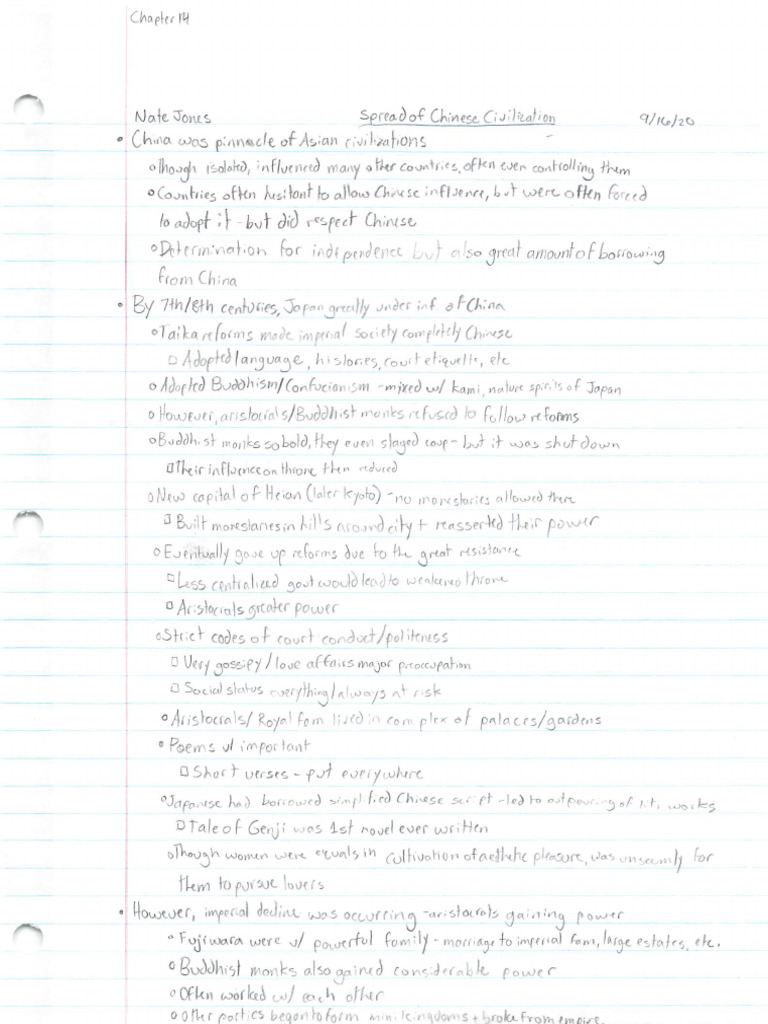 Chapter 14
Nate Jones Spread of Chinese Civilization 9/16/20
• China was pinnacle of Asian civilizations
o Though isolated, influenced many other countries, often even controlling them
o Countries often hesitant to allow Chinese influence, but were often forced
to adopt it - but did respect Chinese
o Determination for independence but also great amount of borrowing
from China
• By 7th/8th centuries, Japan greatly under inf. of China
o Taika reforms made imperial society completely Chinese
□ Adopted language, histories, court etiquette, etc
o Adopted Buddhism/Confucionism - mixed w/ kami, nature spirits of Japan
o However, aristocrats/Buddhist monks refused to follow reforms
o Buddhist monks so bold, they even staged coup - but it was shut down
□ Their influence on throne then reduced
o New capital of Heian (later kyoto) - no monestaries allowed there
□ Built monestaries in hills around city + reasserted their power
o Eventually gave up reforms due to the great resistance
□ Less centralized govt would lead to weakened throne
□ Aristocrats greater power
o Strict codes of court conduct/politeness
□ Very gossipy/love affairs major preoccupation
□ Social status everything/always at risk
o Aristocrats/Royal fam lived in complex of palaces/gardens
o Poems v/ important
□ Short verses - put everywhere
o Japanese had borrowed simplified Chinese script - led to outpouring of lit. works
□ Tale of Genji was 1st novel ever written
o Though women were equals in cultivation of aesthetic pleasure, was unseemly for
them to pursue lovers
• However, imperial decline was occurring - aristocrats gaining power
o Fujiwara were v/ powerful family - marriage to imperial fam, large estates, etc.
o Buddhist monks also gained considerable power
o Often worked w/ each other
o Other parties began to form mini kingdoms + broke from empire.